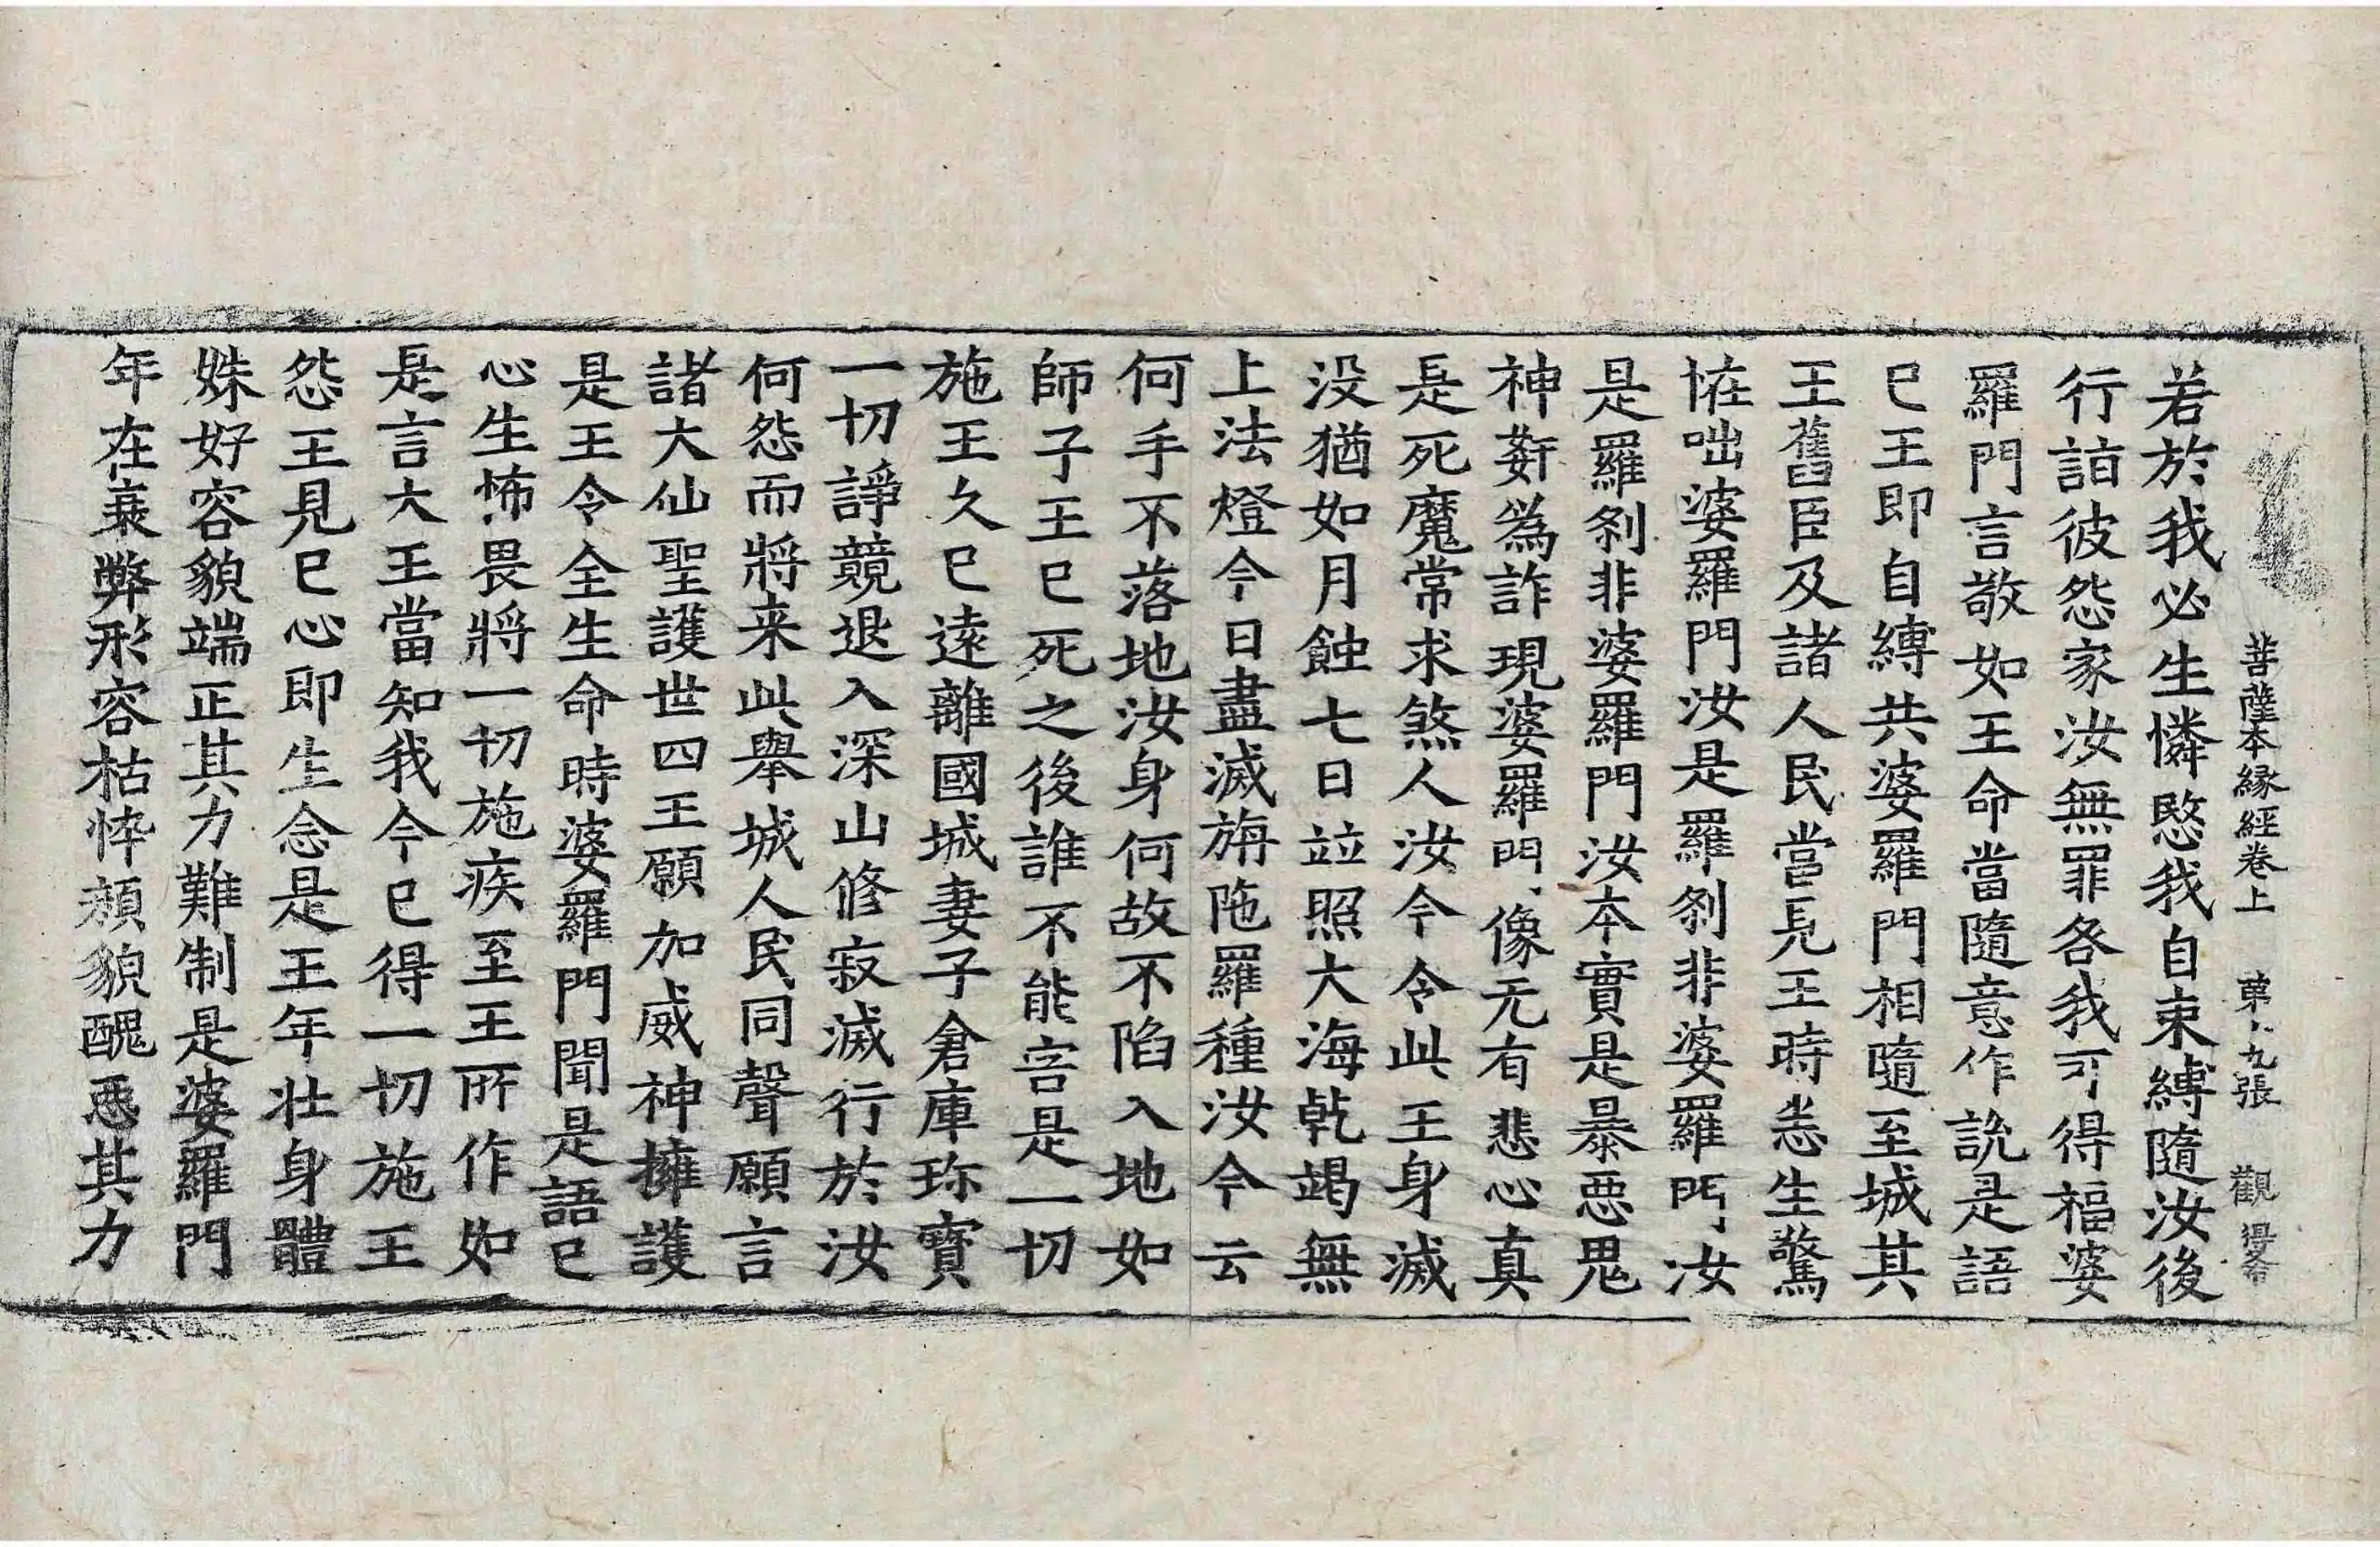 菩薩本緣經卷上　第十九張　觀
若於我必生憐愍我自束縛隨汝後
行詣彼怨家汝無罪咎我可得福婆
羅門言敬如王命當隨意作說是語
已王即自縛共婆羅門相隨至城其
王舊臣及諸人民當見王時恙生驚
恠咄婆羅門汝是羅剎非婆羅門汝
是羅剎非婆羅門汝本實是暴惡鬼
神姧為詐現婆羅門像无有悲心真
是死魔常求煞人汝今令此王身滅
没猶如月蝕七日並照大海乾竭無
上法燈今日盡滅旃陁羅種汝今云
何手不落地汝身何故不陷入地如
師子王已死之後誰不能害是一切
施王久已遠離國城妻子倉庫珎寶
一切諍競退入深山修寂滅行於汝
何怨而將来此舉城人民同聲願言
諸大仙聖護世四王願加威神擁護
是王令全生命時婆羅門聞是語已
心生怖畏將一切施疾至王所作如
是言大王當知我今已得一切施王
怨王見已心即生念是王年壯身體
姝好容貌端正其力難制是婆羅門
年在衰弊形容枯悴頳貌醜惡其力